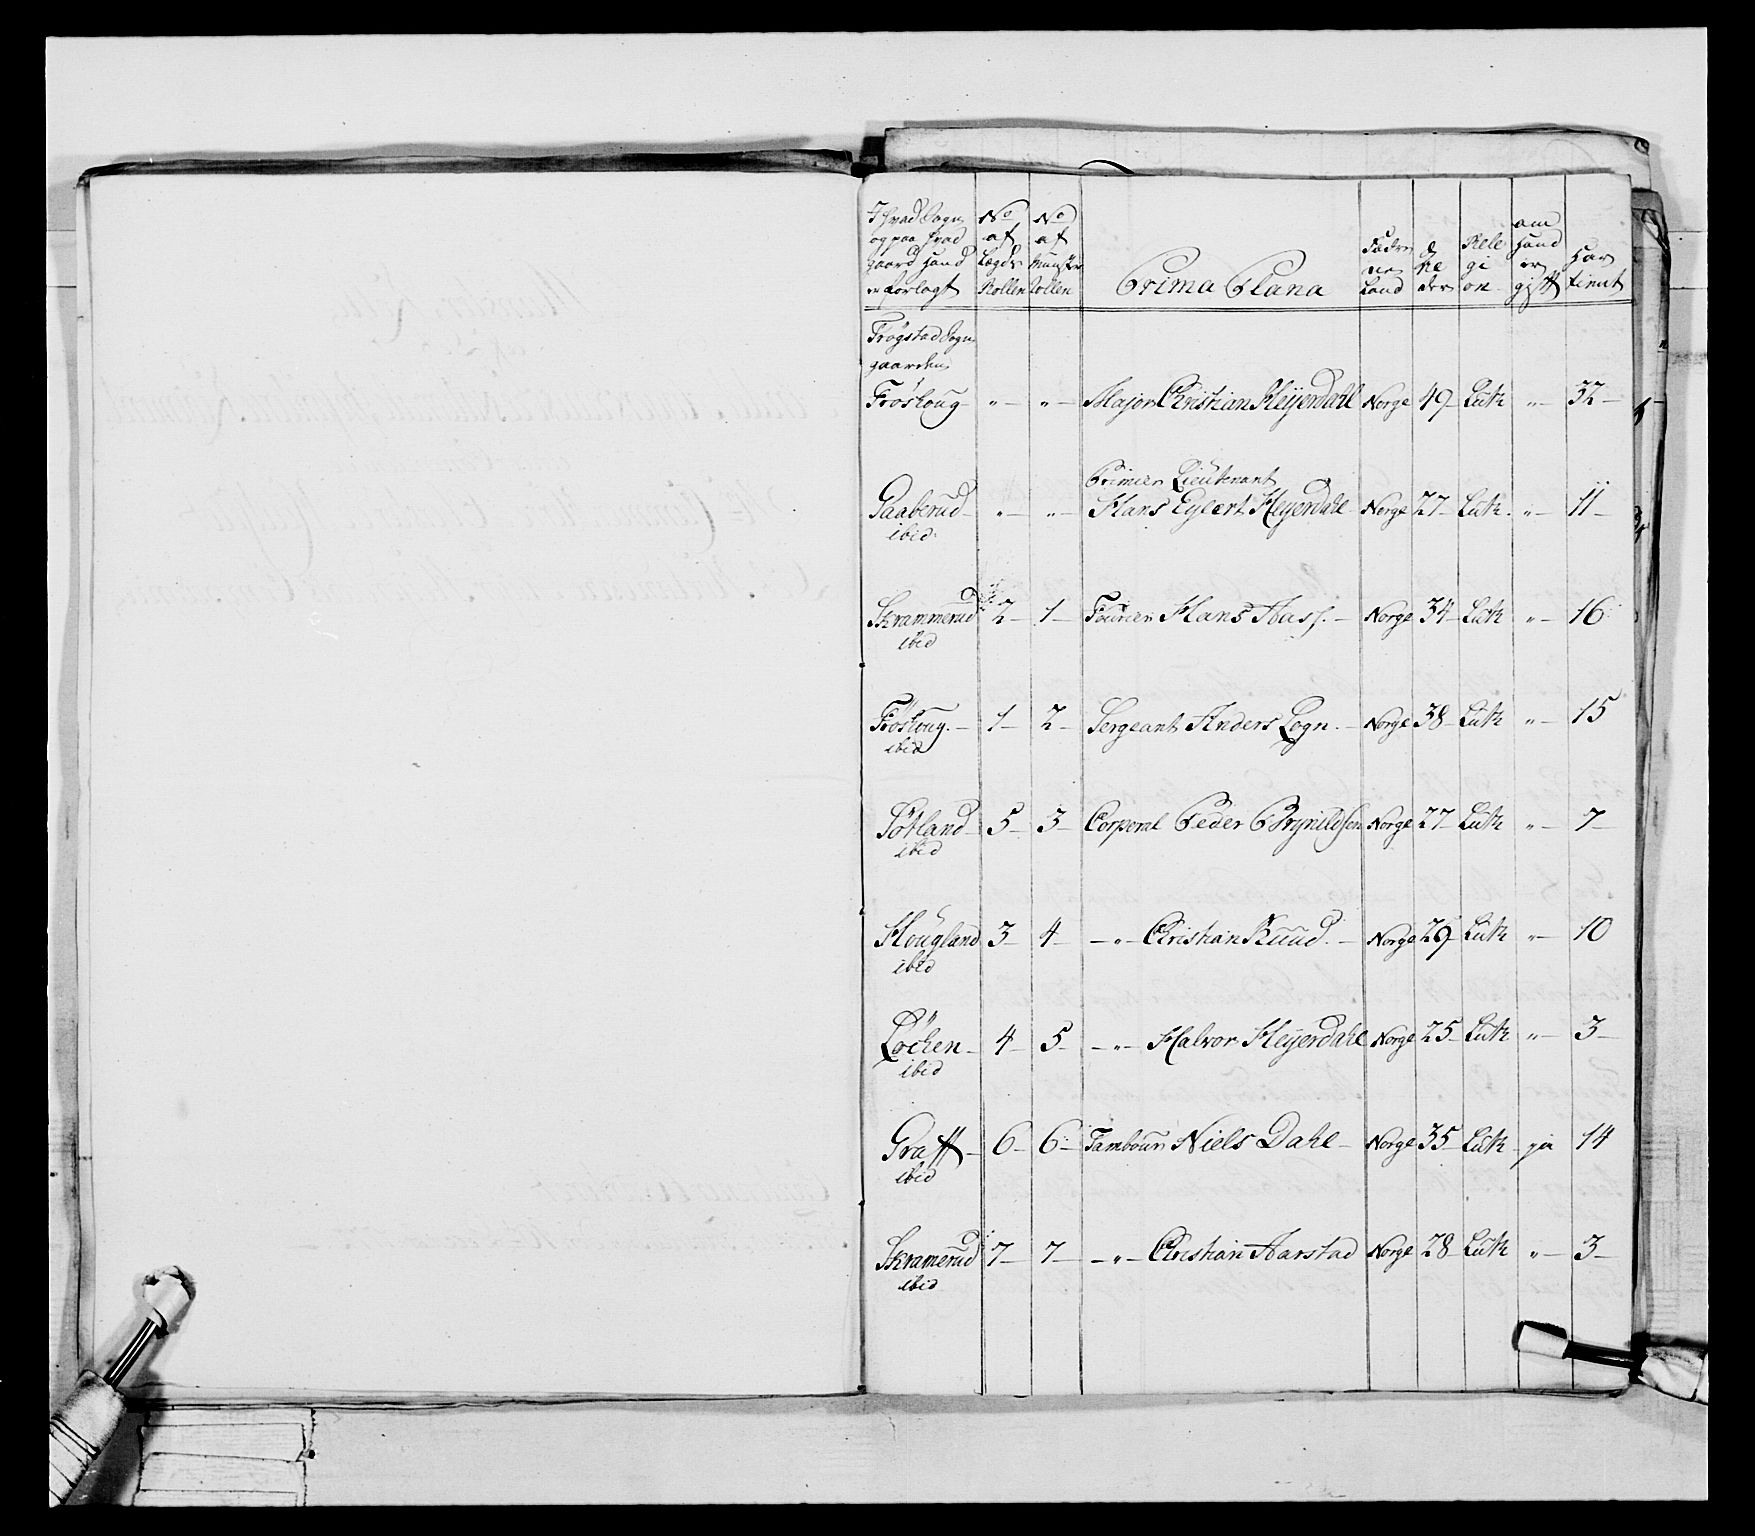 I hvad Sogn og paa hvad gaard Hand er forlagt | No af Lægds Rollen | No af Munster Rollen | Prima Plana | Fædrene Land | Re der | Rele gi on | om Hand er gift | Har tient
Trøgstad Sogn
gaarden
Frøshoug | „ | „ | Major Christian Heyerdahl | Norge | 49 | Luth | „ | 32
Premier Lieutenant
Gaaberud | „ | „ | Hans Eylert Heyerdahl | Norge | 27 | Luth. | „ | 11
ibid
Skrammerud | 2 | 1 | Fourier Hans Aass. | Norge | 34 | Luth | „ | 16
ibid
Frøshoug. | 1 | 2 | Sergeant Anders Logn. | Norge | 38 | Luth | „ | 15
ibid
Søtland | 5 | 3 | Corporal Peder Brynildsen | Norge | 27 | Luth | „ | 7
ibid
Hougland | 3 | 4 | „ Christian Ruud. | Norge | 29 | Luth | „ | 10
ibid
Løchen | 4 | 5 | „ Halvor Heyerdahl | Norge | 25 | Luth | „ | 3
ibid
Graff | 6 | 6 | Tambour Niels Dahl | Norge | 35 | Luth | ja | 14
ibid
Skramerud | 7 | 7 | „ Christian Aarstad | Norge | 28 | Luth | „ | 3
ibid